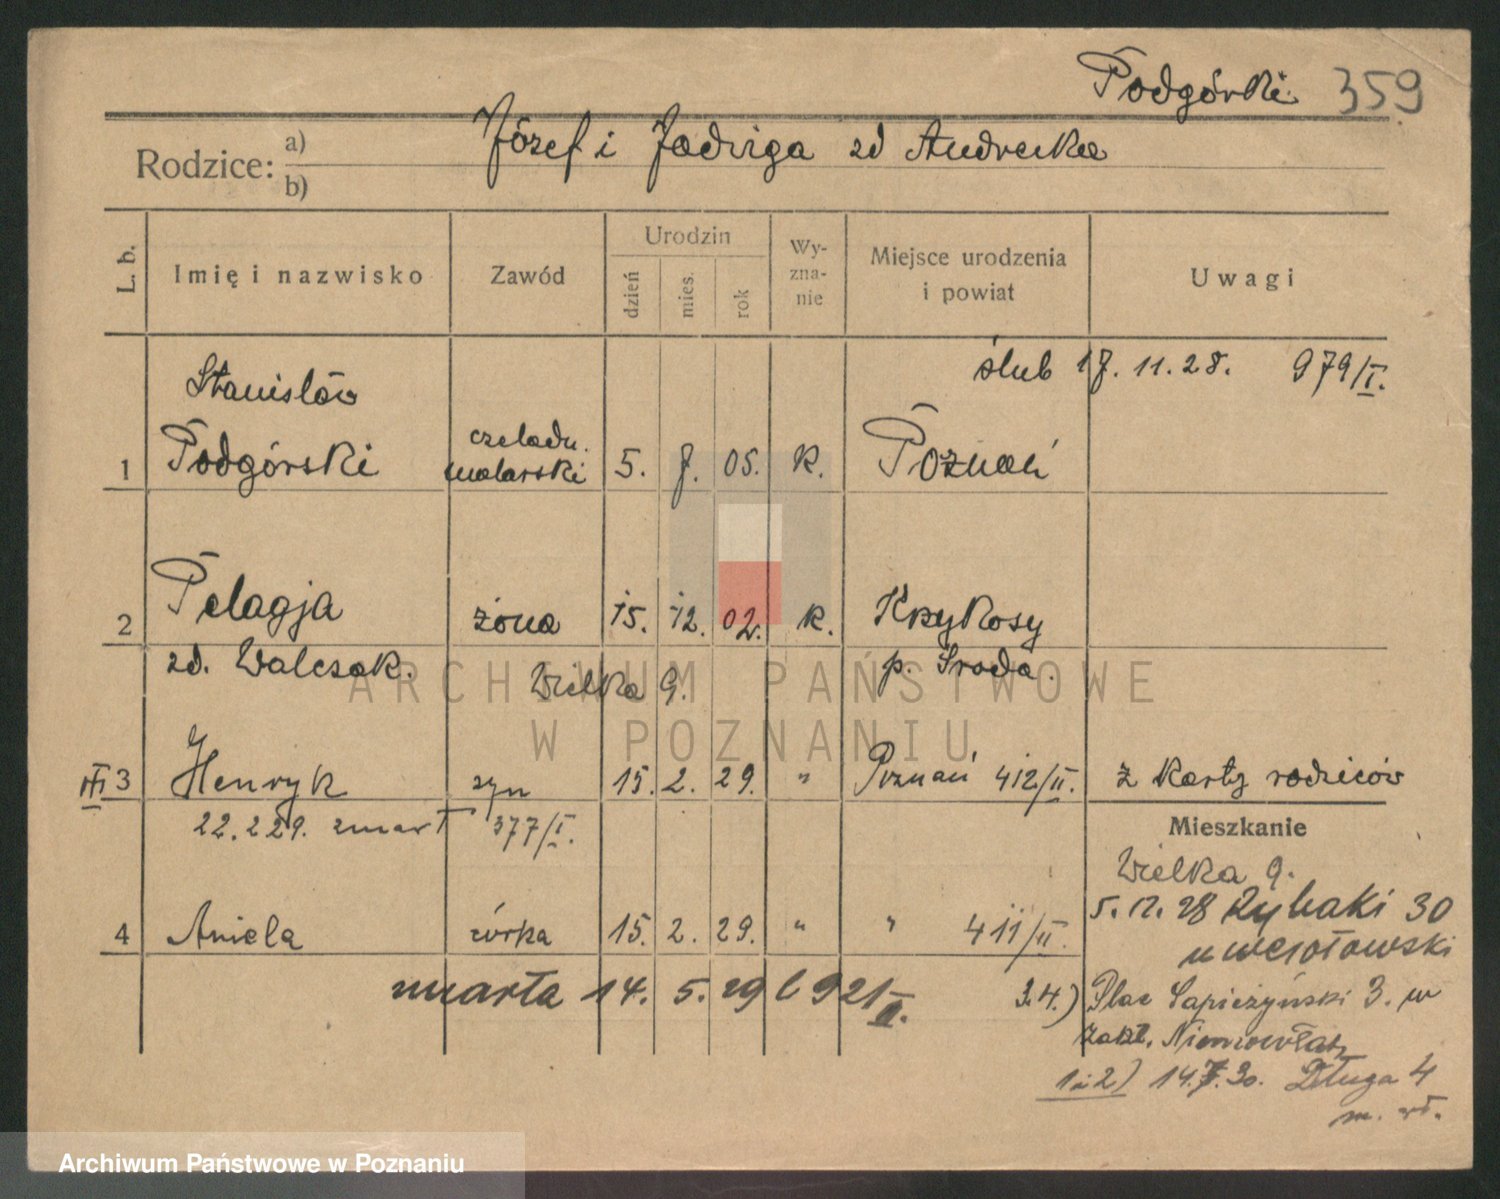 Podgórski 359
Rodzice: a) b) Józef i Jadwiga zd Andrecka
L. b. Imię i nazwisko Zawód Urodzin dzień mies. rok Wyznanie Miejsce urodzenia i powiat Uwagi
ślub 17. 11. 28. 979/I.
Stanisław
1 Podgórski czeladn. malarski 5. 7. 05. K. Poznań
2 Pelagja żona 15. 12. 02. k. Krzykosy
zd. Walczak. Wielka 9. p. Środa.
ARCHIWUM PAŃSTWOWE
W POZNANIU
III 3 Henryk syn 15. 2. 29. " Poznań 412/II. z karty rodziców
22. 2 29. zmarł 377/I.
Mieszkanie
Wielka 9.
4 Aniela córka 15. 2. 29. " " 411/II.
5. 12. 28 Rybaki 30
zmarła 14. 5. 29 921/II.
3.4.) Plac Sapieżyński 3. w
Zakł. Niemowląt
1 i 2) 14.7.30. Długa 4
Archiwum Państwowe w Poznaniu